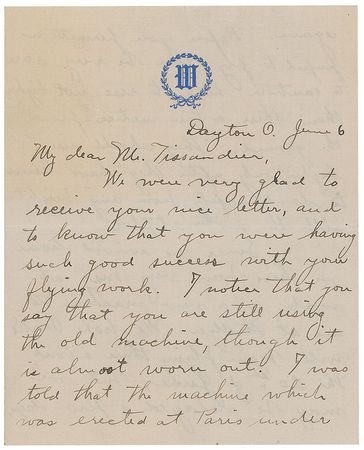 W
Dayton O. June 6
My dear Mr. Tissandier,
We were very glad to
receive your nice letter, and
to know that you were having
such good success with your
flying work. I notice that you
say that you are still using
the old machine, though it
is almost worn out. I was
told that the machine which
was erected at Paris under